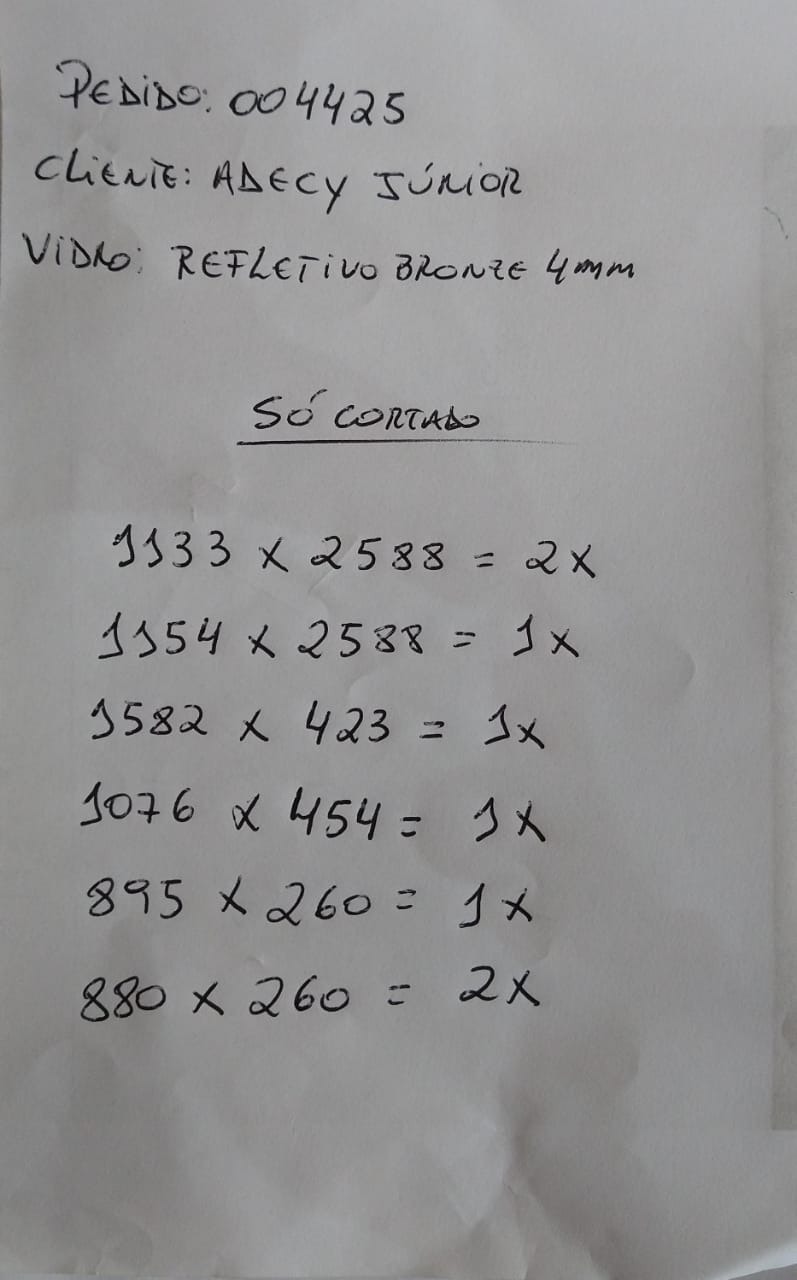 PEDIDO: 004425
CLIENTE: ADECY JÚNIOR
VIDRO: REFLETIVO BRONZE 4mm
SÓ CORTADO
1133 x 2588 = 2x
1154 x 2588 = 1x
1582 x 423 = 1x
1076 x 454 = 1x
895 x 260 = 1x
880 x 260 = 2x